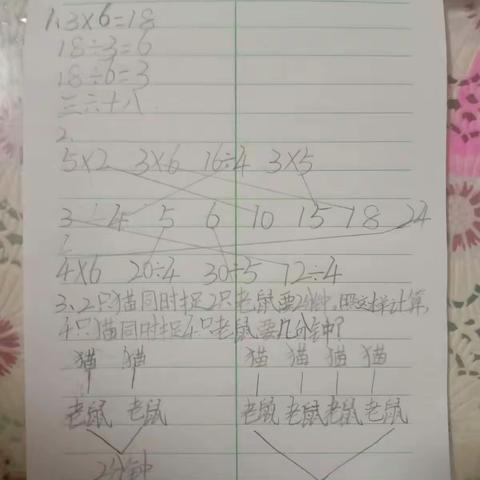 1、3×6=18
18÷3=6
18÷6=3
三六十八
2、
5×2 3×6 16÷4 3×5
3 4 5 6 10 15 18 24
4×6 20÷4 30÷5 12÷4
3、2只猫同时捉2只老鼠要2分钟,照这样计算,
4只猫同时捉4只老鼠要几分钟?
猫 猫 猫 猫 猫 猫
老鼠 老鼠 老鼠 老鼠 老鼠 老鼠
2分钟